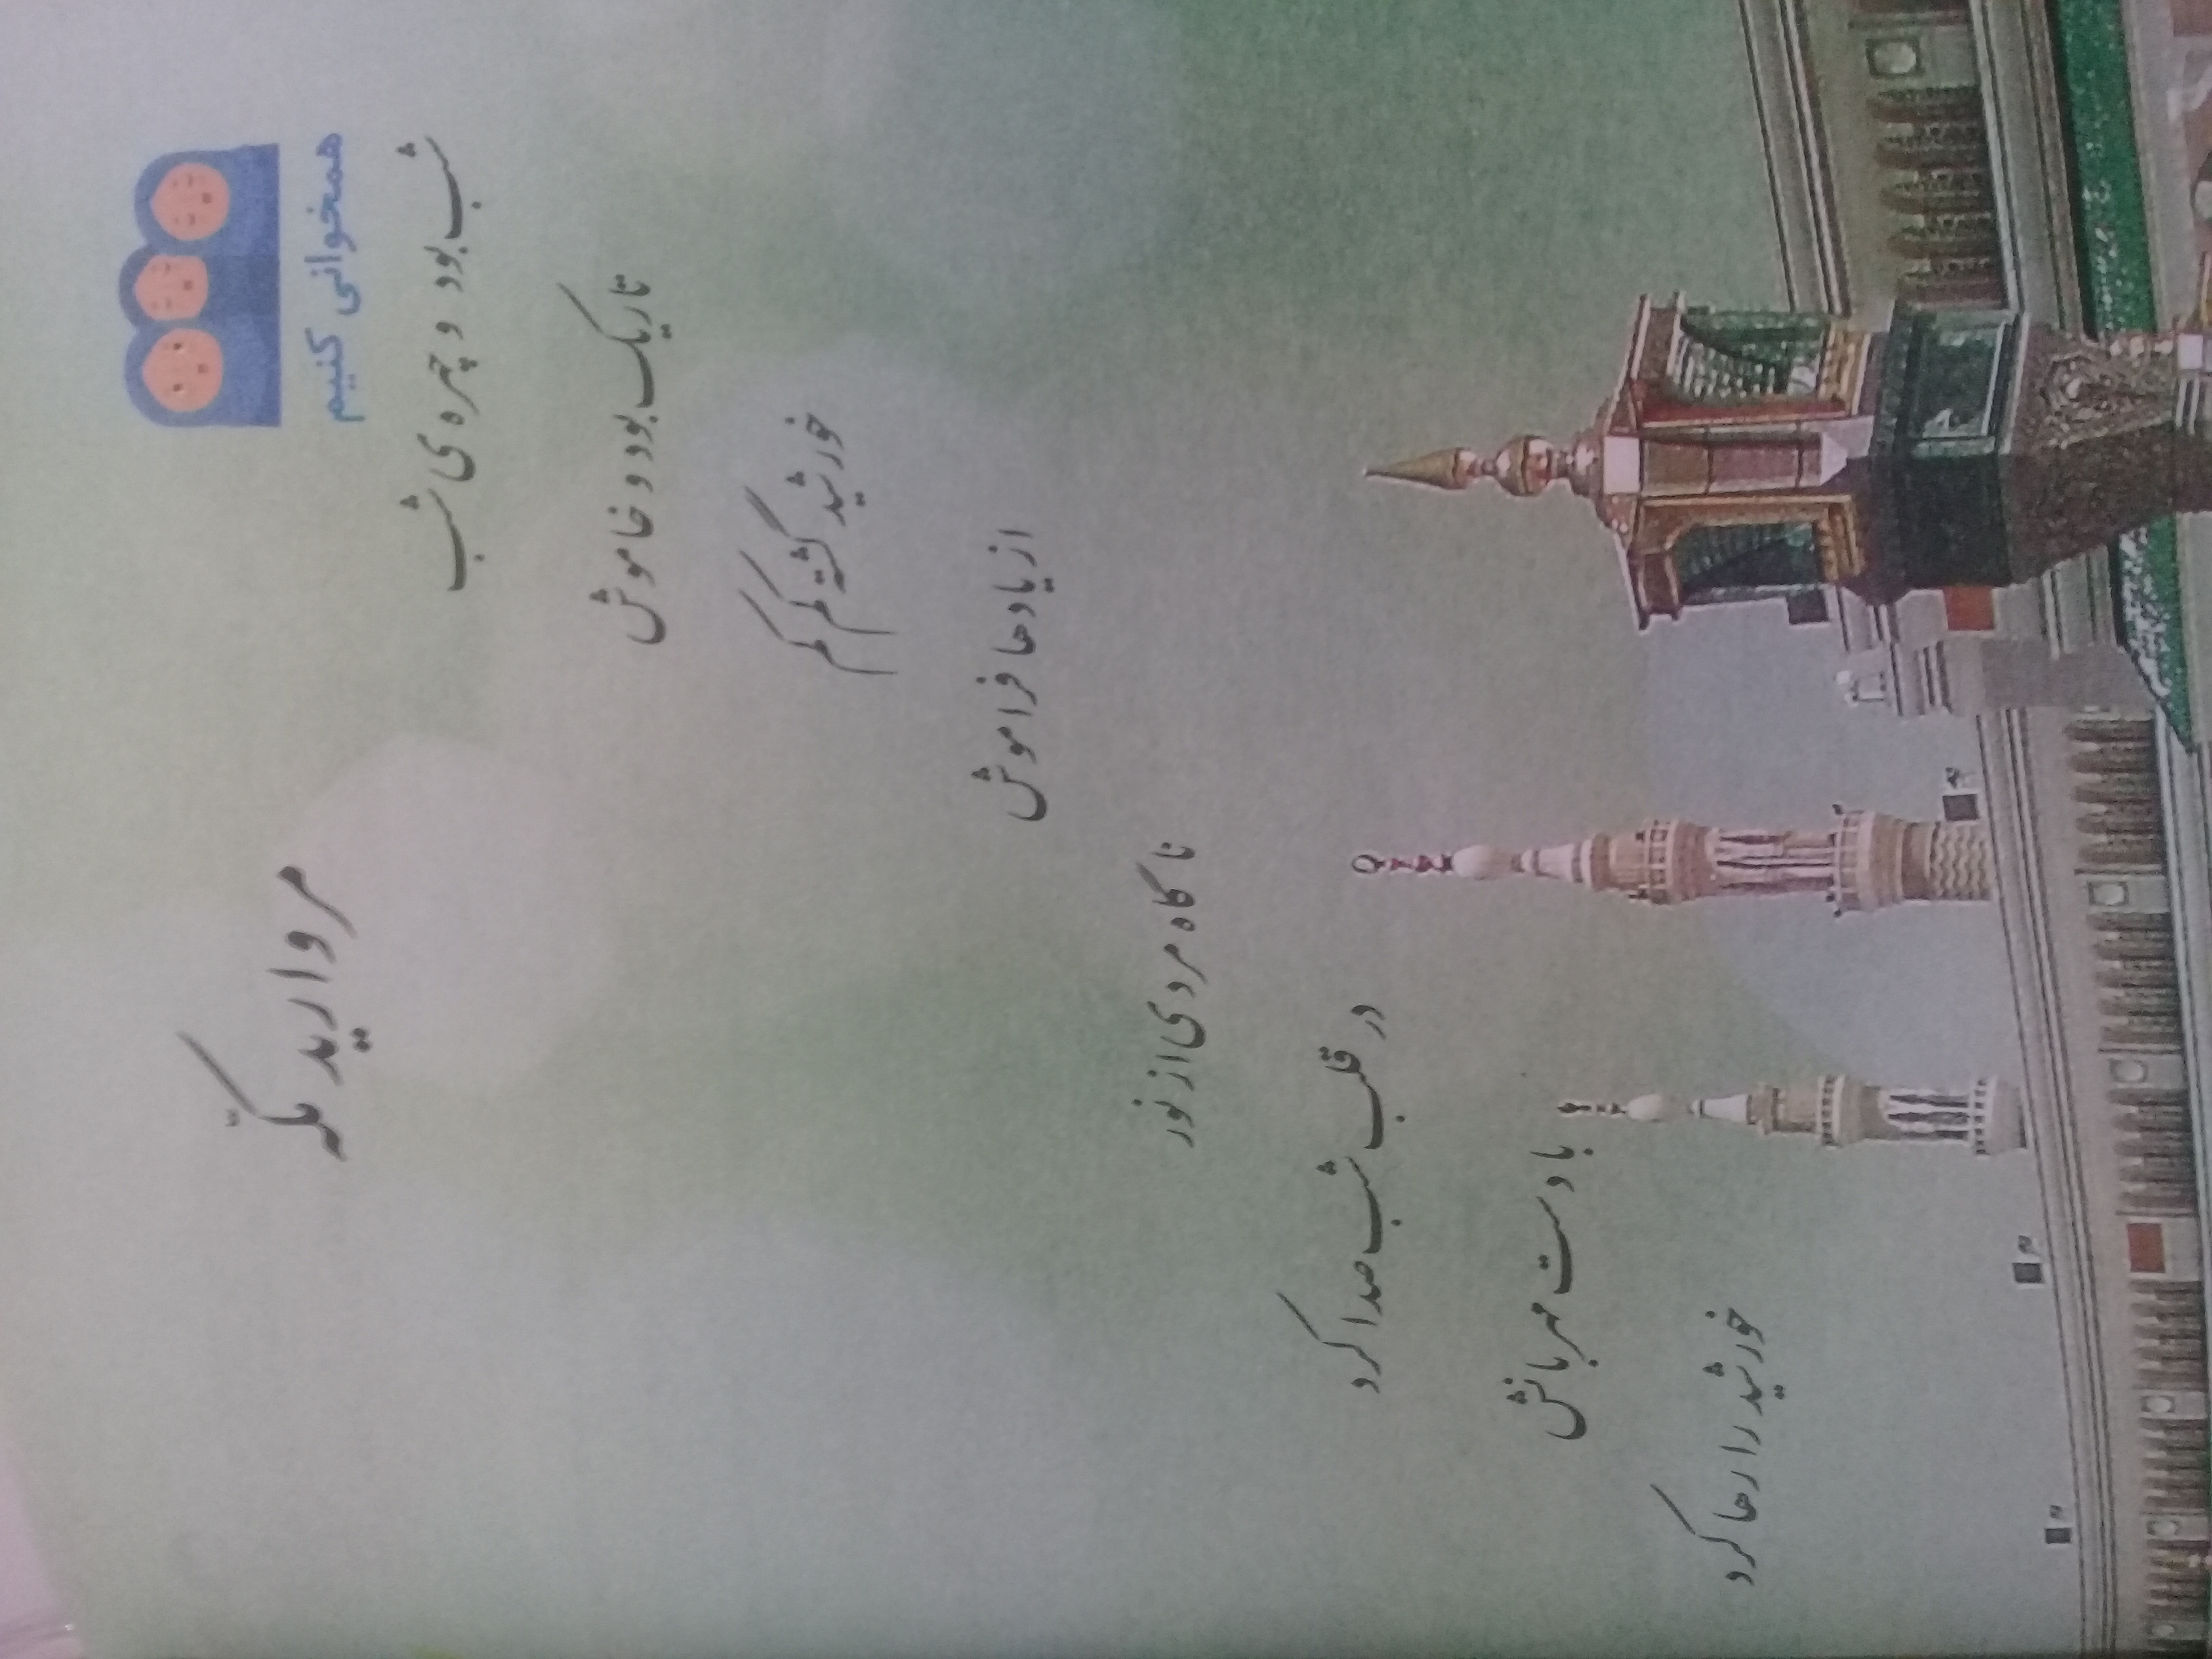 همخوانی کنیم
مروارید مکّه
شب بود و چهره ی شب
تاریک بود و خاموش
خورشید گشته کم کم
از یادها فراموش
ناگاه مردی از نور
در قلب شب صدا کرد
با دست مهربانش
خورشید را رها کرد